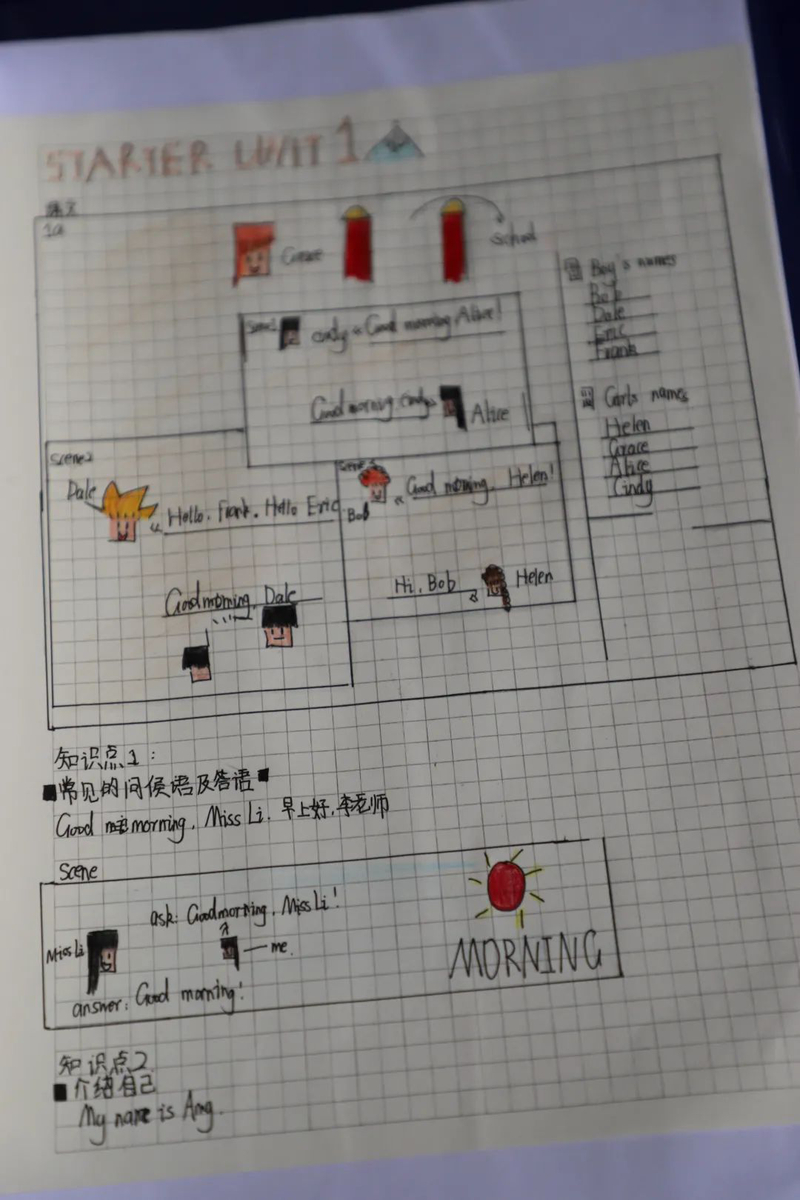 STARTER UNIT 1
课文
1a
Grace
School
Scene1
Cindy
Good morning Alice!
Good morning Cindy
Alice
Scene2
Dale
Hello, Frank. Hello Eric
Good morning, Dale
Scene3
Bob
Good morning, Helen!
Hi, Bob
Helen
Boy's names
Bob
Dale
Eric
Frank
Girls names
Helen
Grace
Alice
Cindy
知识点1：
■常见的问候语及答语■
Good morning, Miss Li. 早上好,李老师
Scene
ask: Good morning, Miss Li!
Miss Li
me.
answer: Good morning!
MORNING
知识点2
■介绍自己
My name is